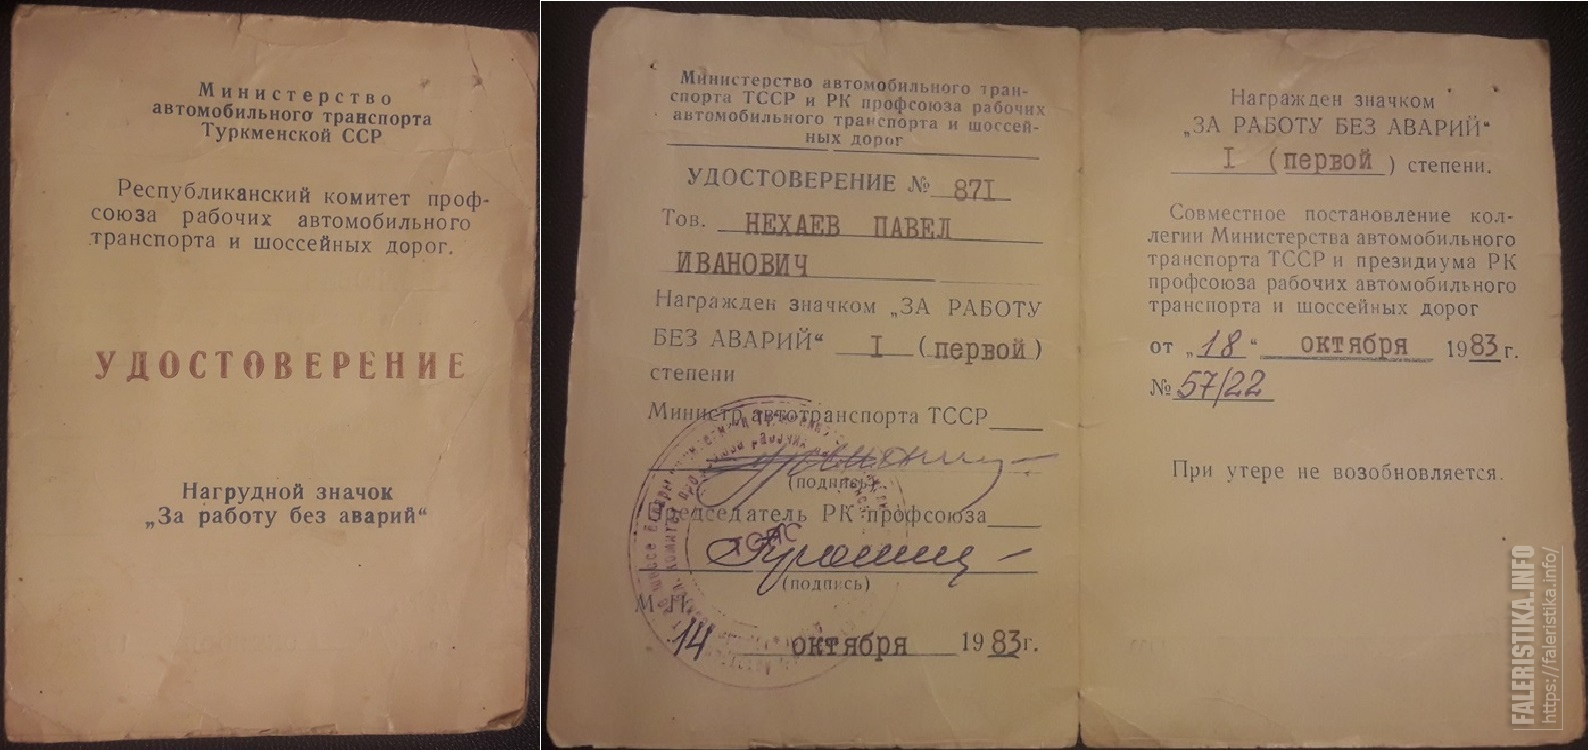 Министерство
автомобильного транспорта
Туркменской ССР
Республиканский комитет проф-
союза рабочих автомобильного
транспорта и шоссейных дорог.
УДОСТОВЕРЕНИЕ
Нагрудной значок
„За работу без аварий“
Министерство автомобильного тран-
спорта ТССР и РК профсоюза рабочих
автомобильного транспорта и шоссей-
ных дорог
УДОСТОВЕРЕНИЕ № 871
Тов. НЕХАЕВ ПАВЕЛ
ИВАНОВИЧ
Награжден значком „ЗА РАБОТУ
БЕЗ АВАРИЙ“ I (первой)
степени
Министр автотранспорта ТССР
(подпись)
Председатель РК профсоюза
(подпись)
М. П.
14 октября 1983г.
Награжден значком
„ЗА РАБОТУ БЕЗ АВАРИЙ“
I (первой) степени.
Совместное постановление кол-
легии Министерства автомобильного
транспорта ТССР и президиума РК
профсоюза рабочих автомобильного
транспорта и шоссейных дорог
от „18“ октября 1983г.
№ 57/22
При утере не возобновляется.
FALERISTIKA.INFO
https://faleristika.info/